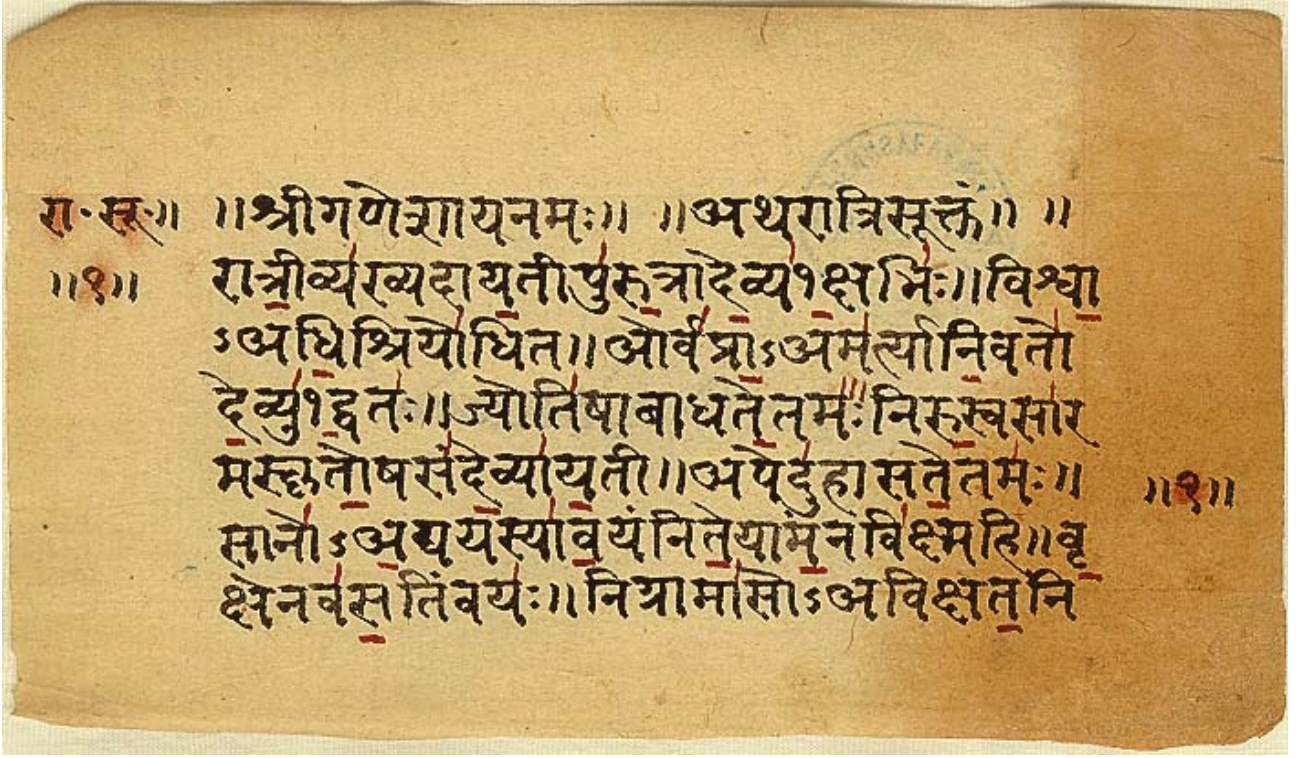 रा॰सू॰॥ ॥श्रीगणेशायनमः॥ ॥अथरात्रिसूक्तं॥ ॥
॥१॥ रात्रीव्यख्यदायतीपुरुत्रादेव्य१क्षभिः॥विश्वा
ऽअधिश्रियोधित॥ओर्वप्राऽअमर्त्यानिवतो
देव्यु१द्वतः॥ज्योतिषाबाधतेतमःनिरुस्वसार
मस्कृतोषसंदेव्यायती॥अपेदुहासतेतमः॥ ॥१॥
सानोऽअद्ययस्यावयंनितेयामंनविक्ष्महि॥वृ
क्षेनवसतिंवयः॥निग्रामासोऽअविक्षतनि